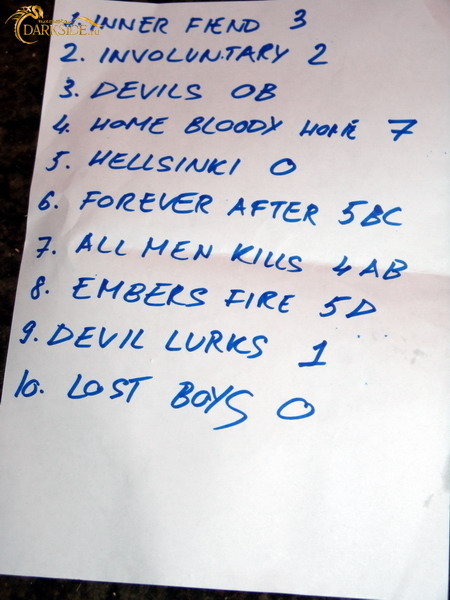 DARKSIDE.ru
1. INNER FIEND 3
2. INVOLUNTARY 2
3. DEVILS 0B
4. HOME BLOODY HOME 7
5. HELLSINKI 0
6. FOREVER AFTER 5BC
7. ALL MEN KILLS 4AB
8. EMBERS FIRE 5D
9. DEVIL LURKS 1
10. LOST BOYS 0